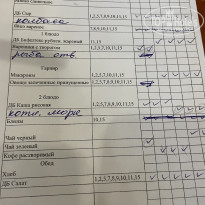 ДБ Сыр 1,2,3,7,8,9,10,11,15
колбаса
Яйцо вареное 7,8,9,10,11,15
1 блюдо
ДБ Бефстеки рубить. жареный 11,15
Вареники с творогом 1,2,3,7,10,11,15
рыба отв
Гарнир
Макароны 1,2,3,7,8,9,10,11,15
Овощи запеченные припущенные 1,2,3,7,8,9,10,11,15
2 блюдо
ДБ Каша рисовая 1,2,3,7,8,9,10,11,15
котл. морк
Блины 10,15
Чай черный
Чай зеленый
Кофе растворимый
Обед
Хлеб 1,2,3,7,8,9,10,11,15
ДБ Салат